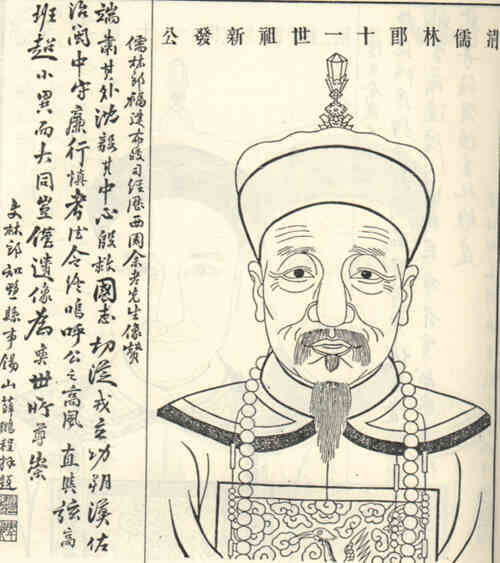 清儒林郎十一世祖新發公
儒林郎福建布政司經歷西園余老先生像贊
端肅其外沈毅其中心殷救國志切從戎立功朔漠佐
治閩中守廉行慎考法令終嗚呼公之高風直與弦高
班超小異而大同豈僅遺像為奕世所尊崇
文林郎知縣事錫山薛鵬程拜題